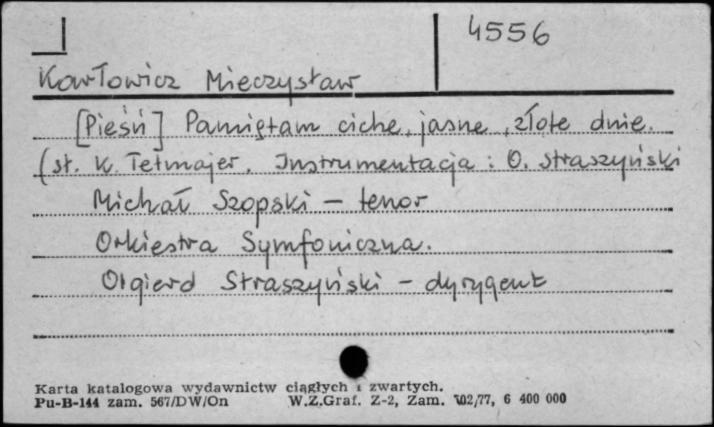 4556
Karłowicz Mieczysław
[Pieśń] Pamiętam ciche, jasne, złote dnie.
(sł. K. Tetmajer. Instrumentacja: O. Straszyński
Michał Szopski – tenor
Orkiestra Symfoniczna.
Olgierd Straszyński – dyrygent
Karta katalogowa wydawnictw ciągłych i zwartych.
Pu-B-144 zam. 567/DW/On W.Z.Graf. Z-2, Zam. 702/77, 6 400 000